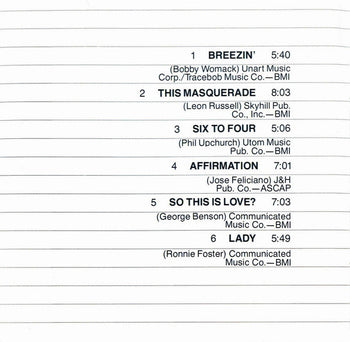 1 BREEZIN' 5:40
(Bobby Womack) Unart Music
Corp./Tracebob Music Co.—BMI
2 THIS MASQUERADE 8:03
(Leon Russell) Skyhill Pub.
Co., Inc.—BMI
3 SIX TO FOUR 5:06
(Phil Upchurch) Utom Music
Pub. Co.—BMI
4 AFFIRMATION 7:01
(Jose Feliciano) J&H
Pub. Co.—ASCAP
5 SO THIS IS LOVE? 7:03
(George Benson) Communicated
Music Co.—BMI
6 LADY 5:49
(Ronnie Foster) Communicated
Music Co.—BMI